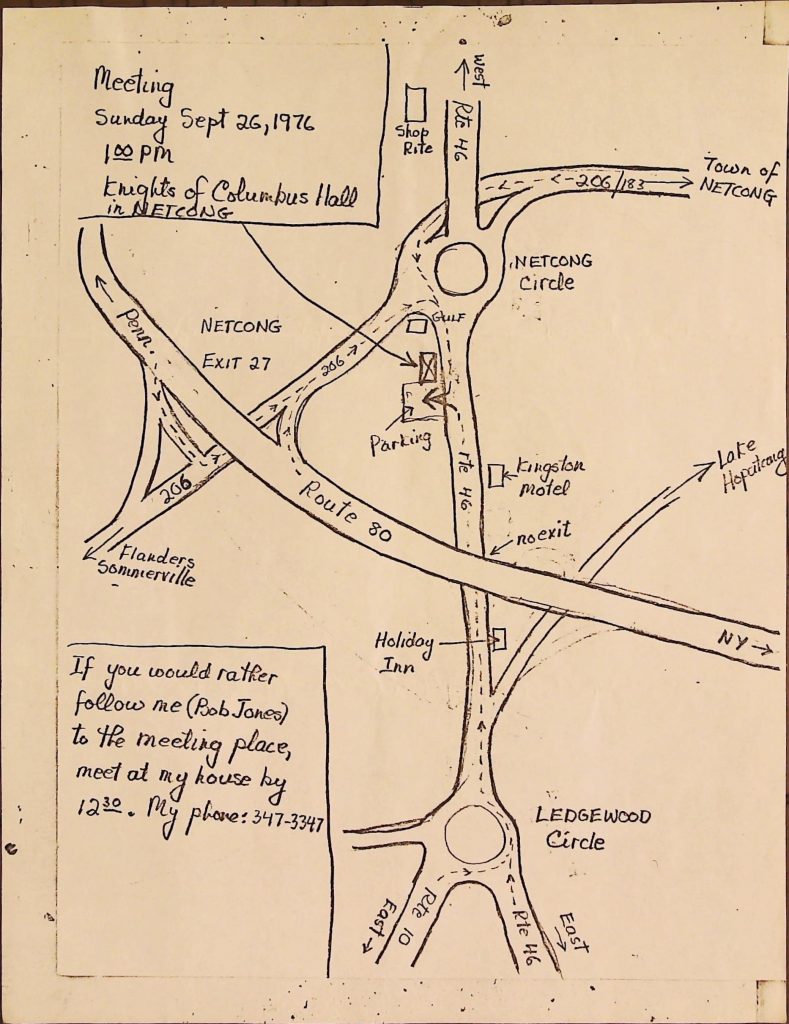 Meeting
Sunday Sept 26, 1976
1:00 PM
Knights of Columbus Hall
in NETCONG
West
Rte 46
Shop
Rite
206/183
Town of
NETCONG
NETCONG
Circle
Penn.
NETCONG
EXIT 27
206
GULF
Parking
rte 46
Kingston
Motel
Lake
Hopatcong
206
Route 80
no exit
Flanders
Sommerville
NY
Holiday
Inn
If you would rather
follow me (Bob Jones)
to the meeting place,
meet at my house by
12 30. My phone: 347-3347
LEDGEWOOD
Circle
East
Rte 10
Rte 46
East